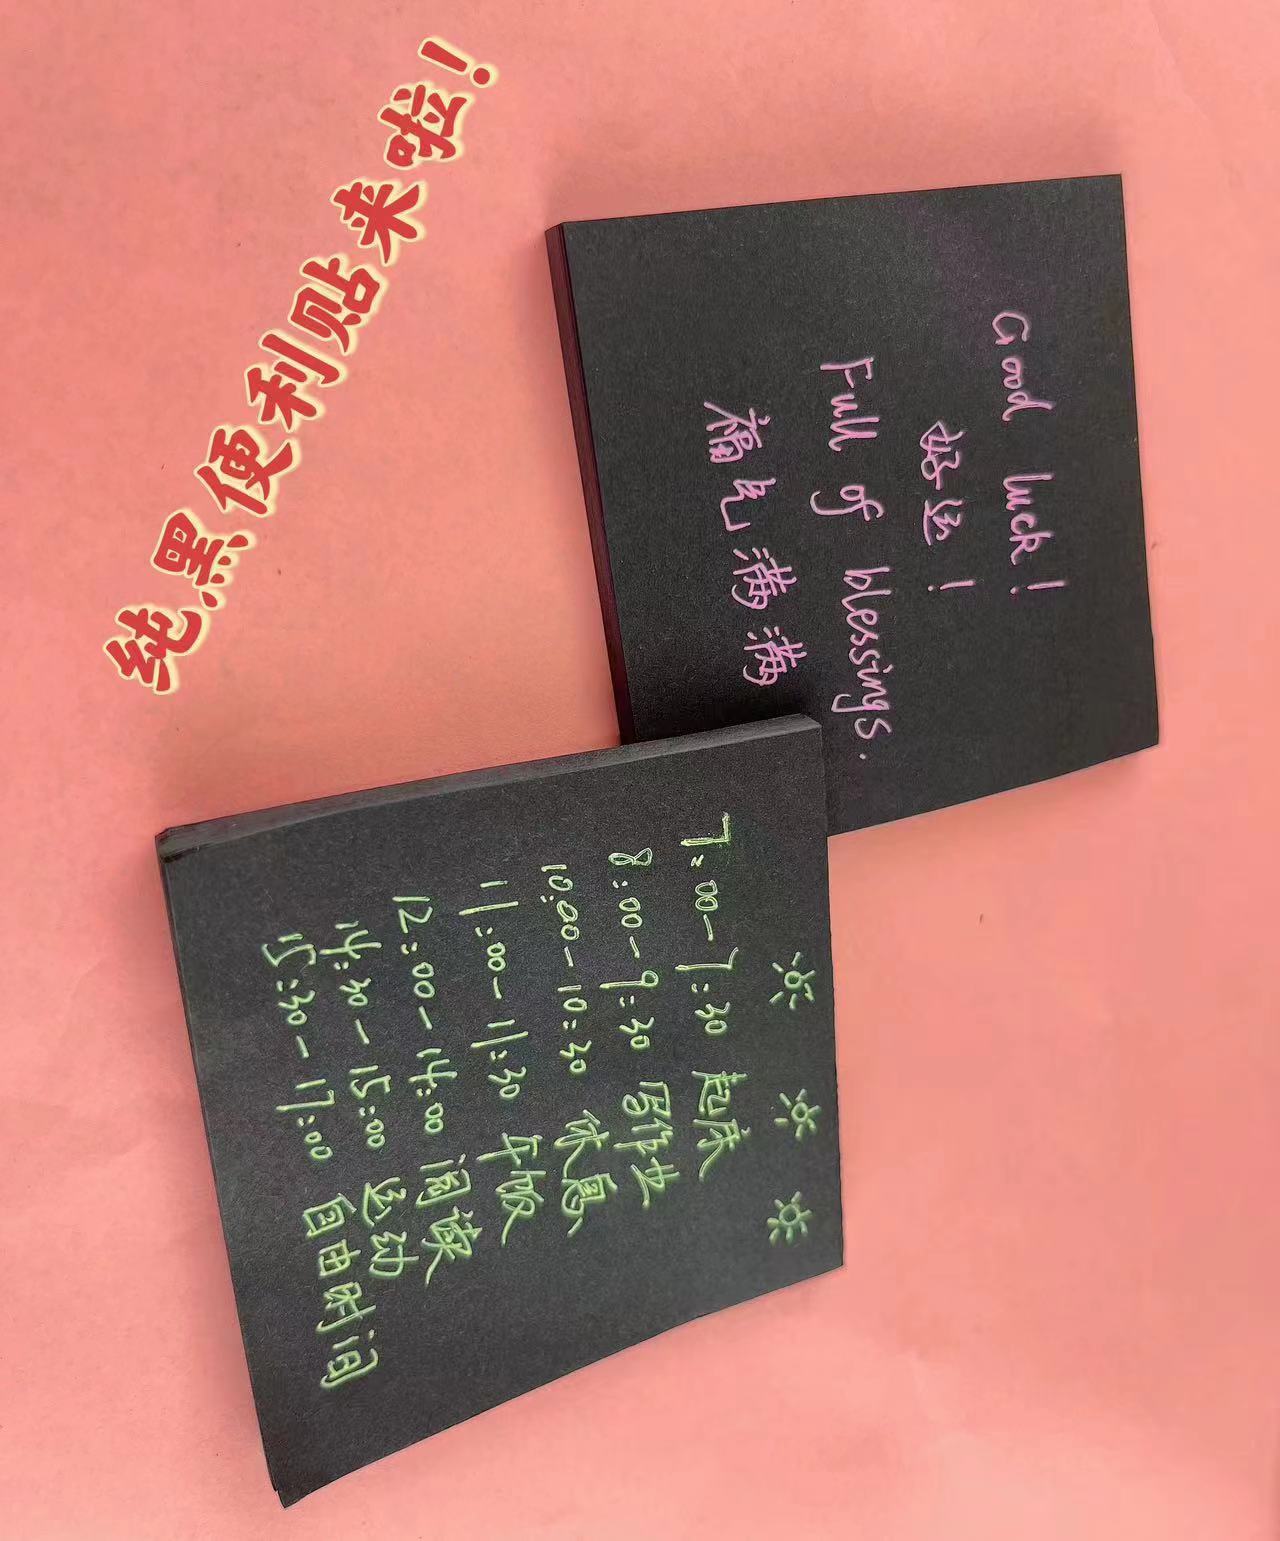 纯黑便利贴来啦！
Good luck!
好运！
Full of blessings.
福气满满
7:00-7:30 起床
8:00-9:30 写作业
10:00-10:30 休息
11:00-11:30 午饭
12:00-14:00 阅读
14:30-15:00 运动
15:30-17:00 自由时间